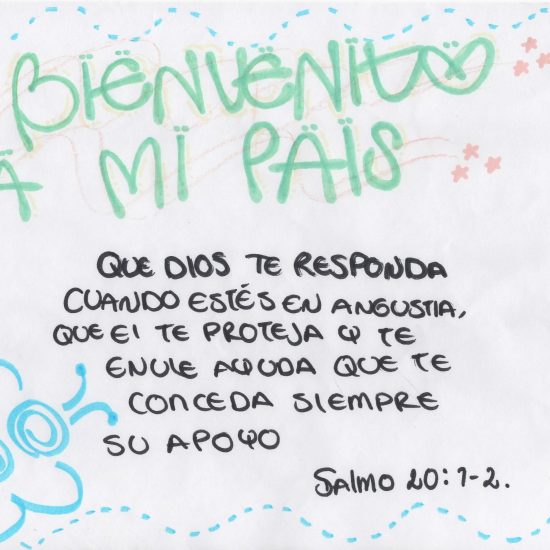 BÏËNVËNITÖ
Ä MÏ PÄÏS
QUE DIOS TE RESPONDA
CUANDO ESTÉS EN ANGUSTIA,
QUE El TE PROTEJA Y TE
ENVIE AYUDA QUE TE
CONCEDA SIEMPRE
SU APOYO
Salmo 20:1-2.